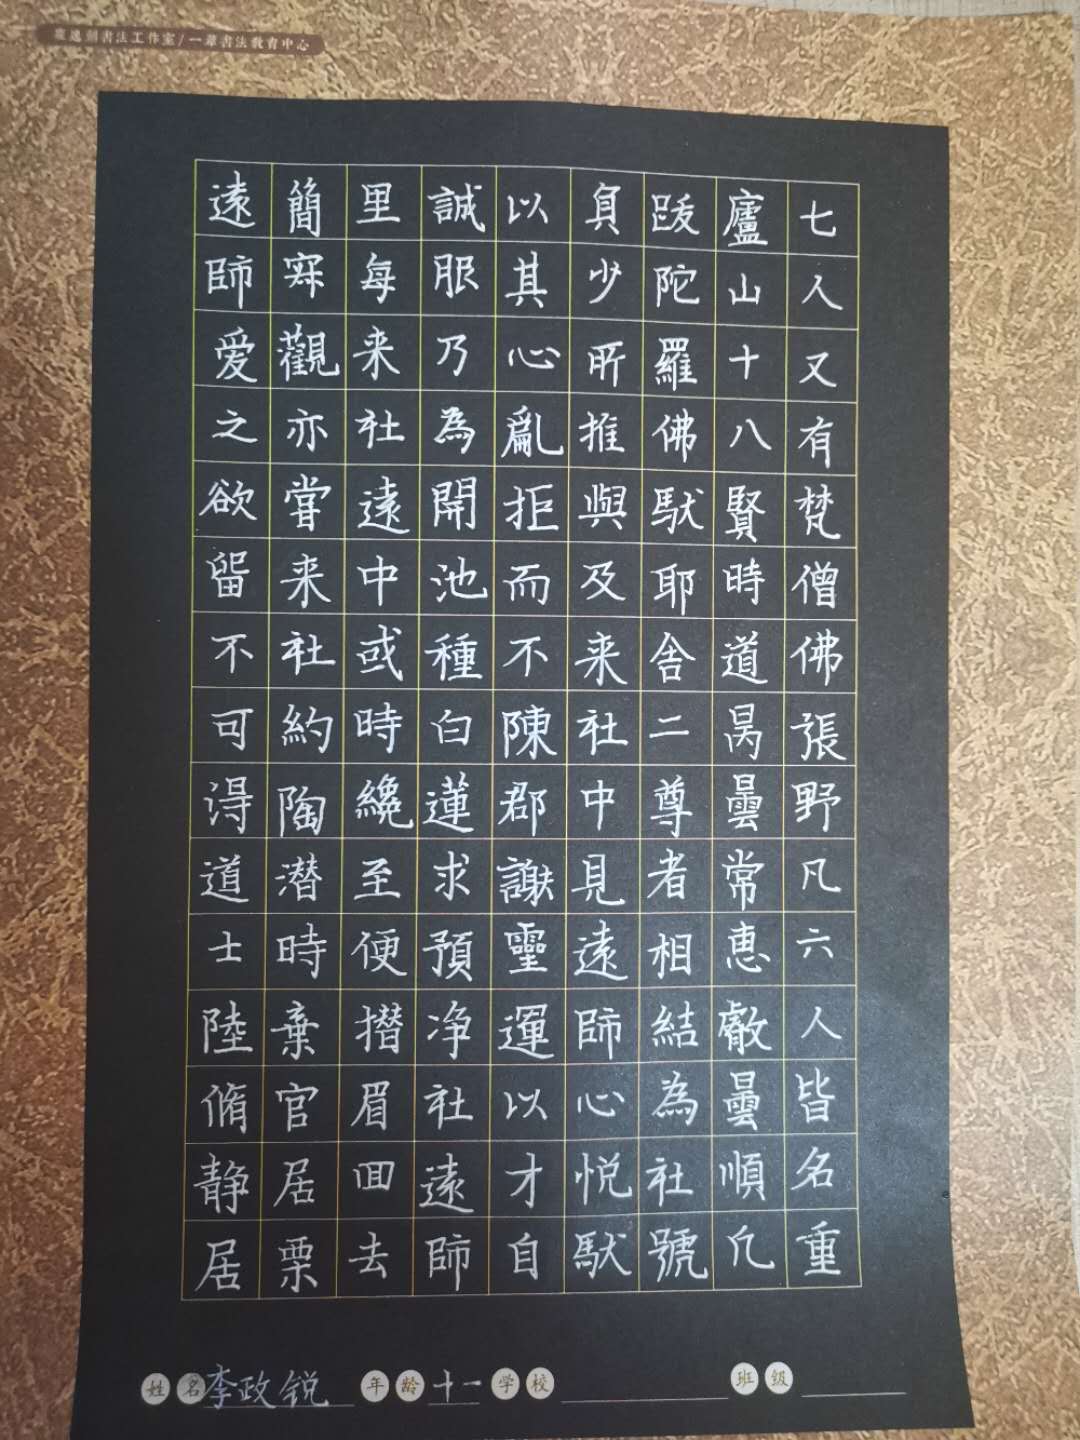 七人又有梵僧佛張野凡六人皆名重
廬山十八賢時道昺曇常惠叡曇順凢
跋陀羅佛馱耶舍二尊者相結為社號
負少所推與及来社中見遠師心悦馱
以其心亂拒而不陳郡謝靈運以才自
誠服乃為開池種白蓮求預净社遠師
里每来社遠中或時纔至便攢眉回去
簡寂觀亦嘗来社約陶潜時棄官居栗
遠師爱之欲留不可得道士陸脩静居
姓名 李政锐 年龄 十一 学校 班级